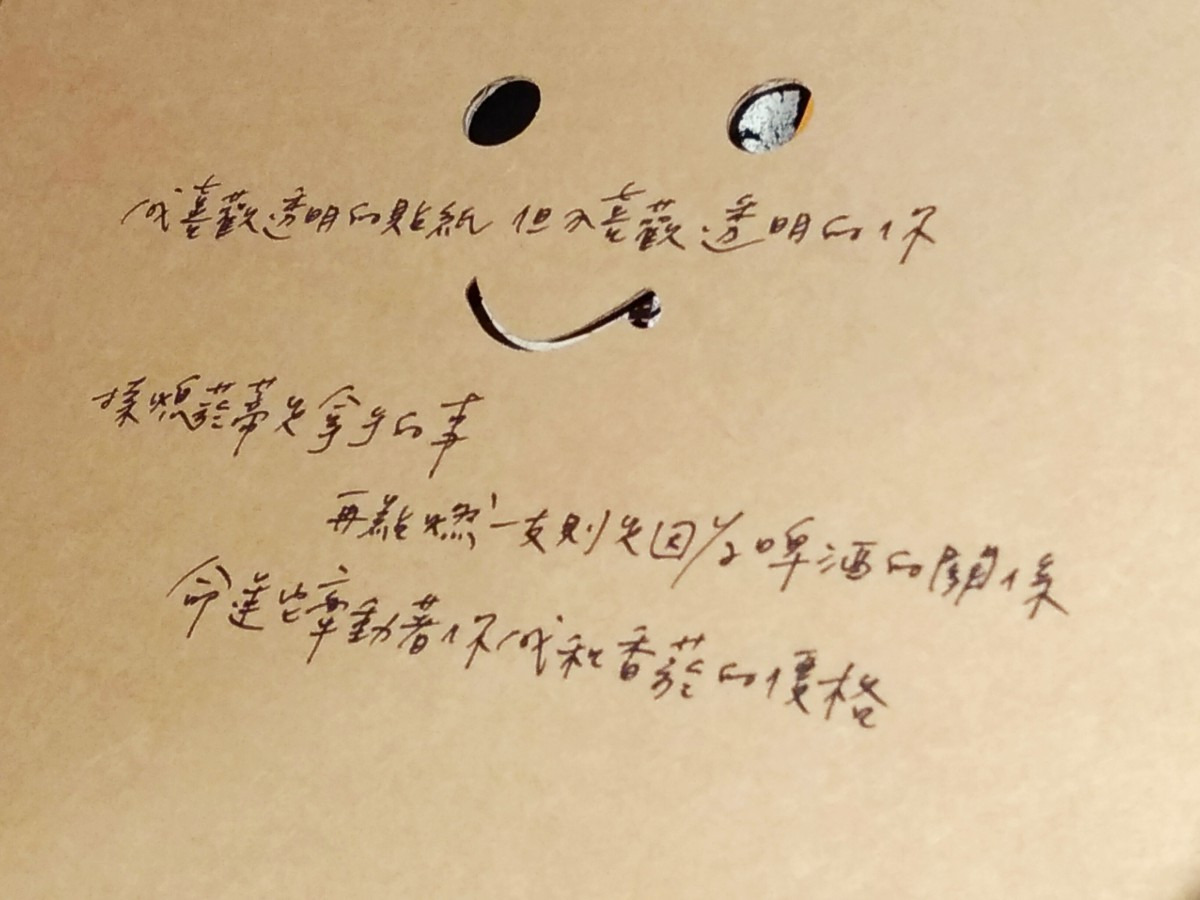 我喜歡透明的貼紙 但不喜歡透明的你
揉熄菸蒂是拿手的事
再點燃一支則是因為啤酒的關係
命運牽動著你我和香菸的價格